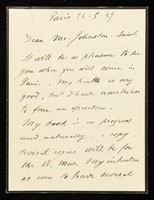 Paris 12-5-29
Dear Mr. Johnston-Saint
It will be a pleasure to see
you when you will come in
Paris. My health is very
good, but I have
to fear an operation.
My book is in progress
and naturally a copy
several copies will be for
the W. Mus. My intention
is even to have several